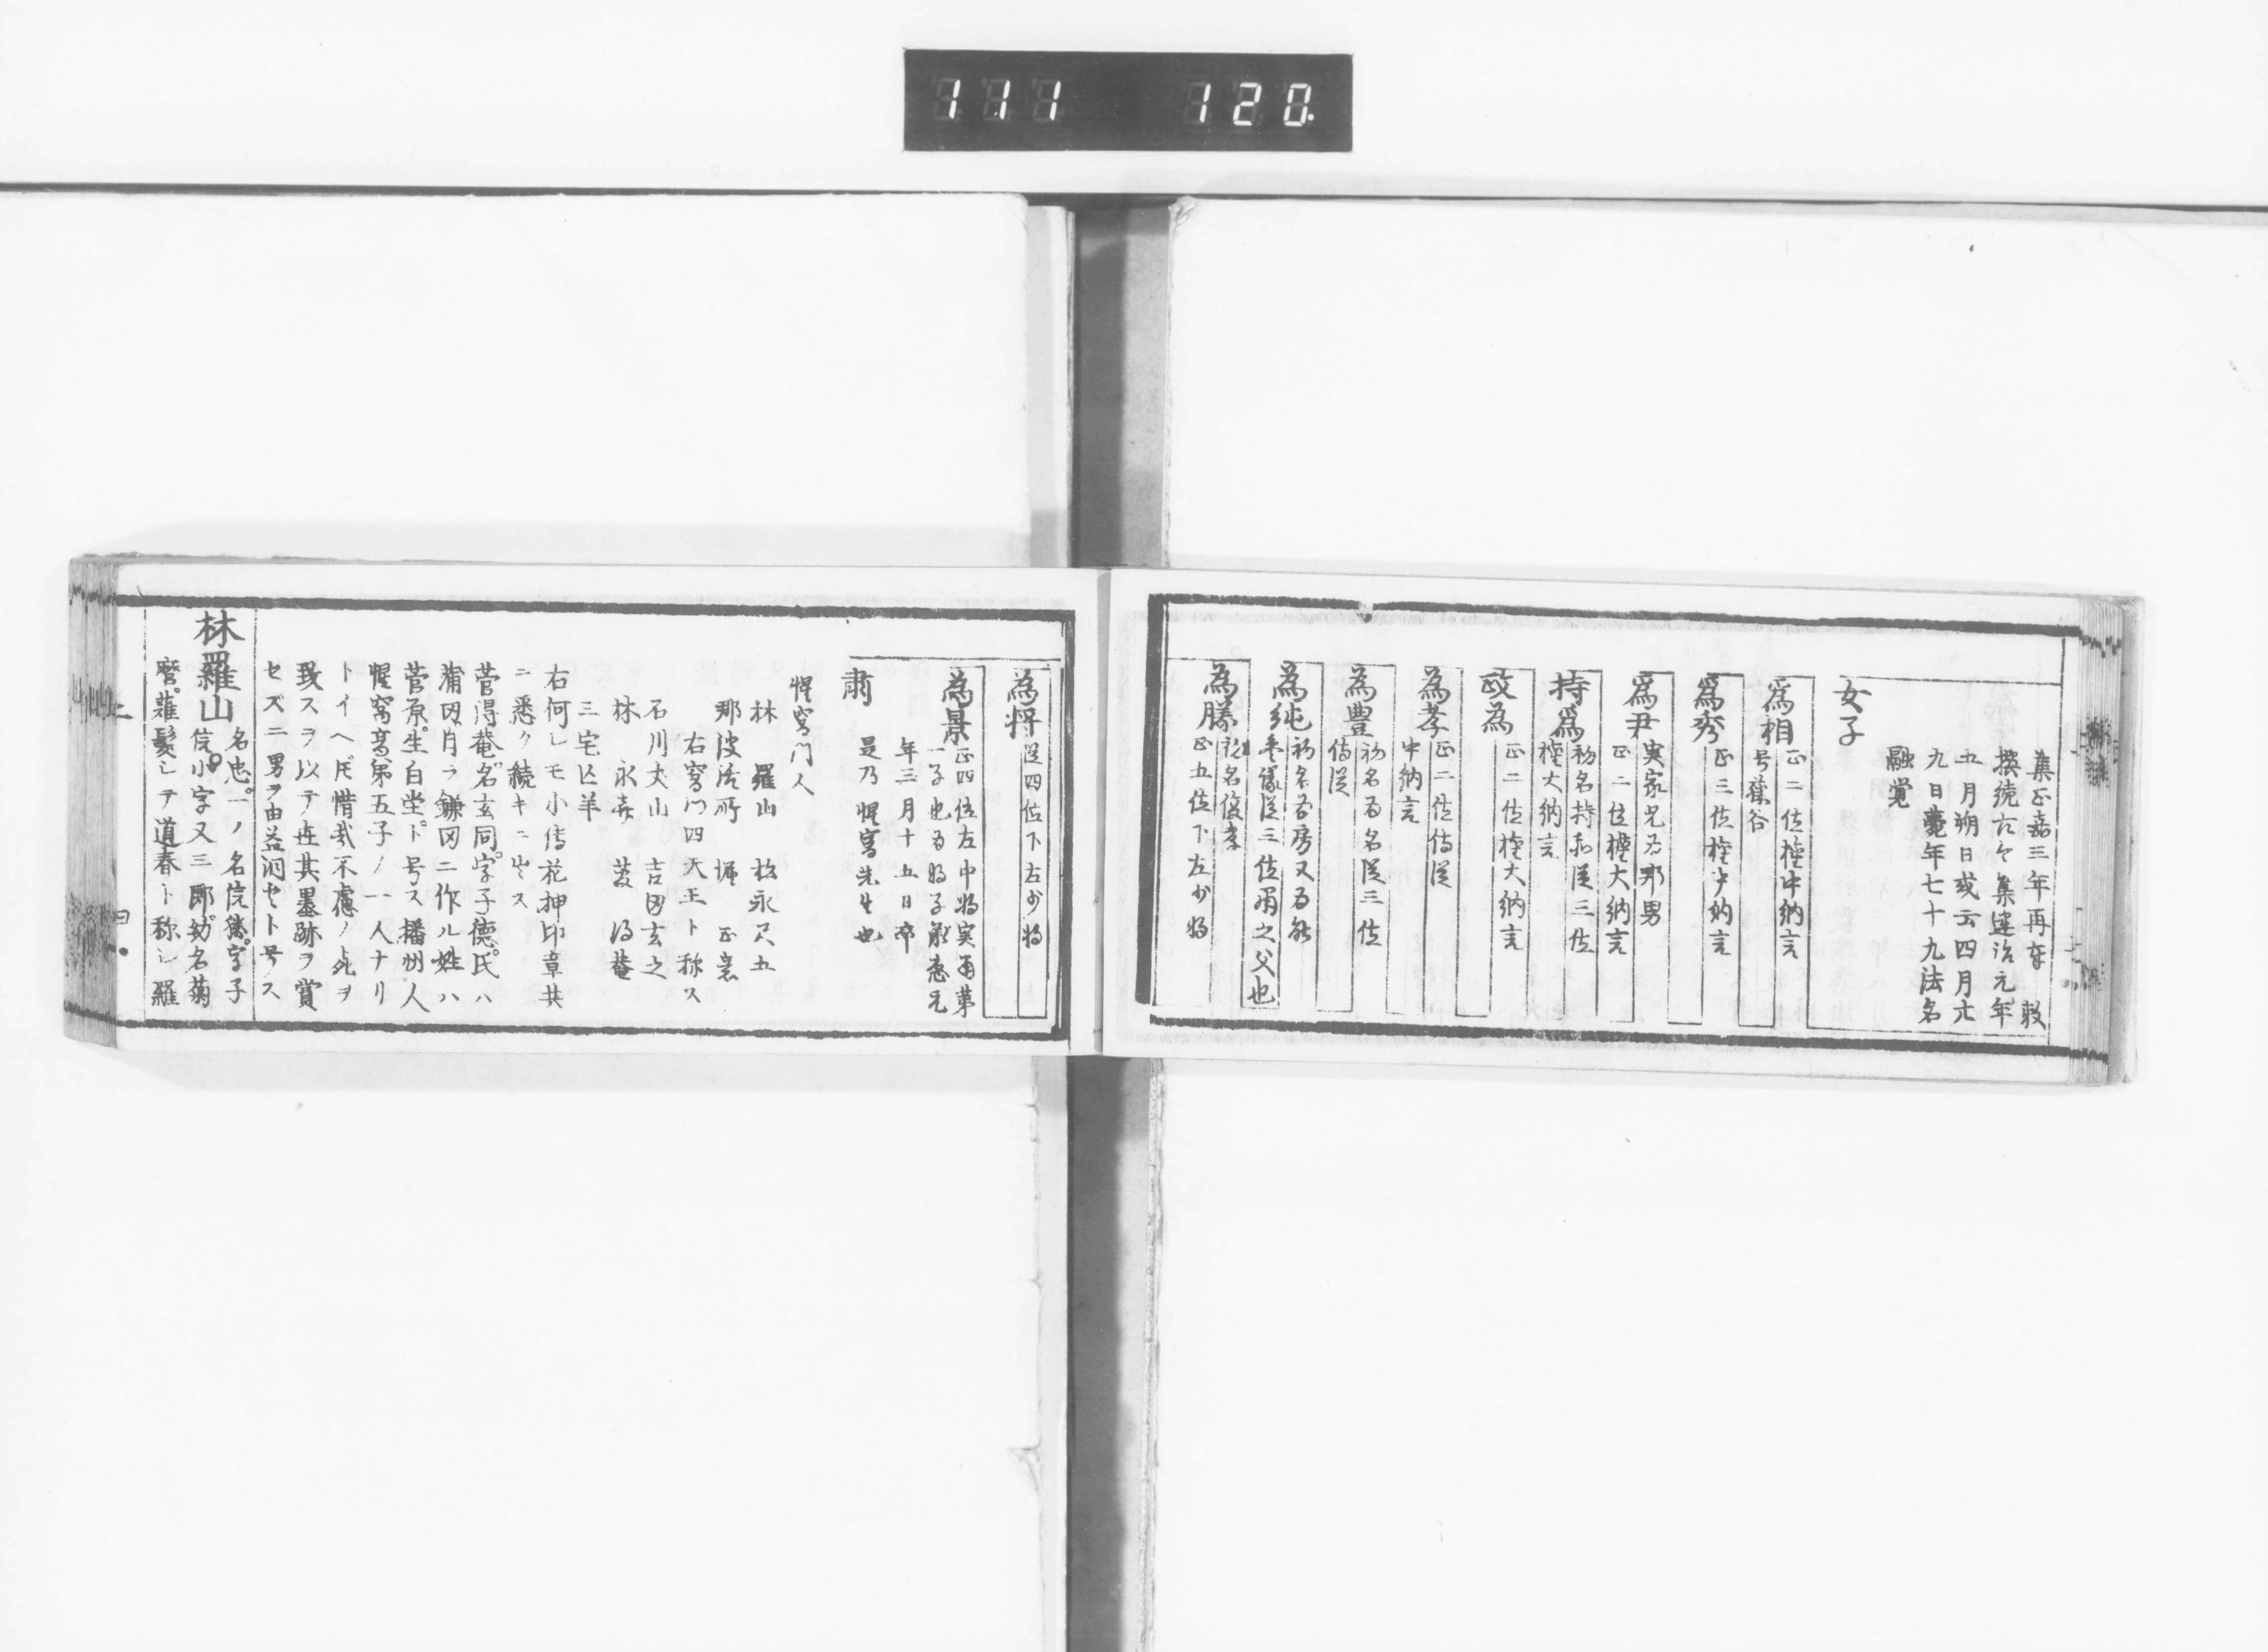 111 120.
集正嘉三年再奉 敕
撰続古今集建治元年
五月朔日或云四月廿
九日薨年七十九法名
融覚
女子
為相 正二位権中納言
号藤谷
為秀 正三位権中納言
為尹 実家兄為邦男
正二位権大納言
持為 初名持和従三位
権大納言
政為 正二位権大納言
為孝 正二位侍従
中納言
為豊 初名為名従三位
侍従
為純 初名為房又為能
参議従三位肅之父也
為勝 初名俊孝
正五位下左少将
為将 従四位下右少将
為景 正四位左中将実肅第
一子也為将子継慶元
年三月十五日卒
肅 是乃惺窩先生也
惺窩門人
林 羅山 松永尺五
那波活所 堀 正意
右窩門四天王ト称ス
石川丈山 吉田玄之
林 永喜 菅 得菴
三宅亡羊
右何レモ小傳花押印章共
ニ悉ク続キニ出ス
菅得菴名玄同字子徳氏ハ
蒲田月ラ鎌田ニ作ル姓ハ
菅原生白堂ト号ス播州人
惺窩高第五子ノ一人ナリ
トイヘ𪜈惜哉不慮ノ死ヲ
致スヲ以テ世其墨跡ヲ賞
セズ二男ヲ由益洞セト号ス
林羅山 名忠一ノ名信勝字子
信小字又三郎幼名菊
麿薙髪シテ道春ト称シ羅
上